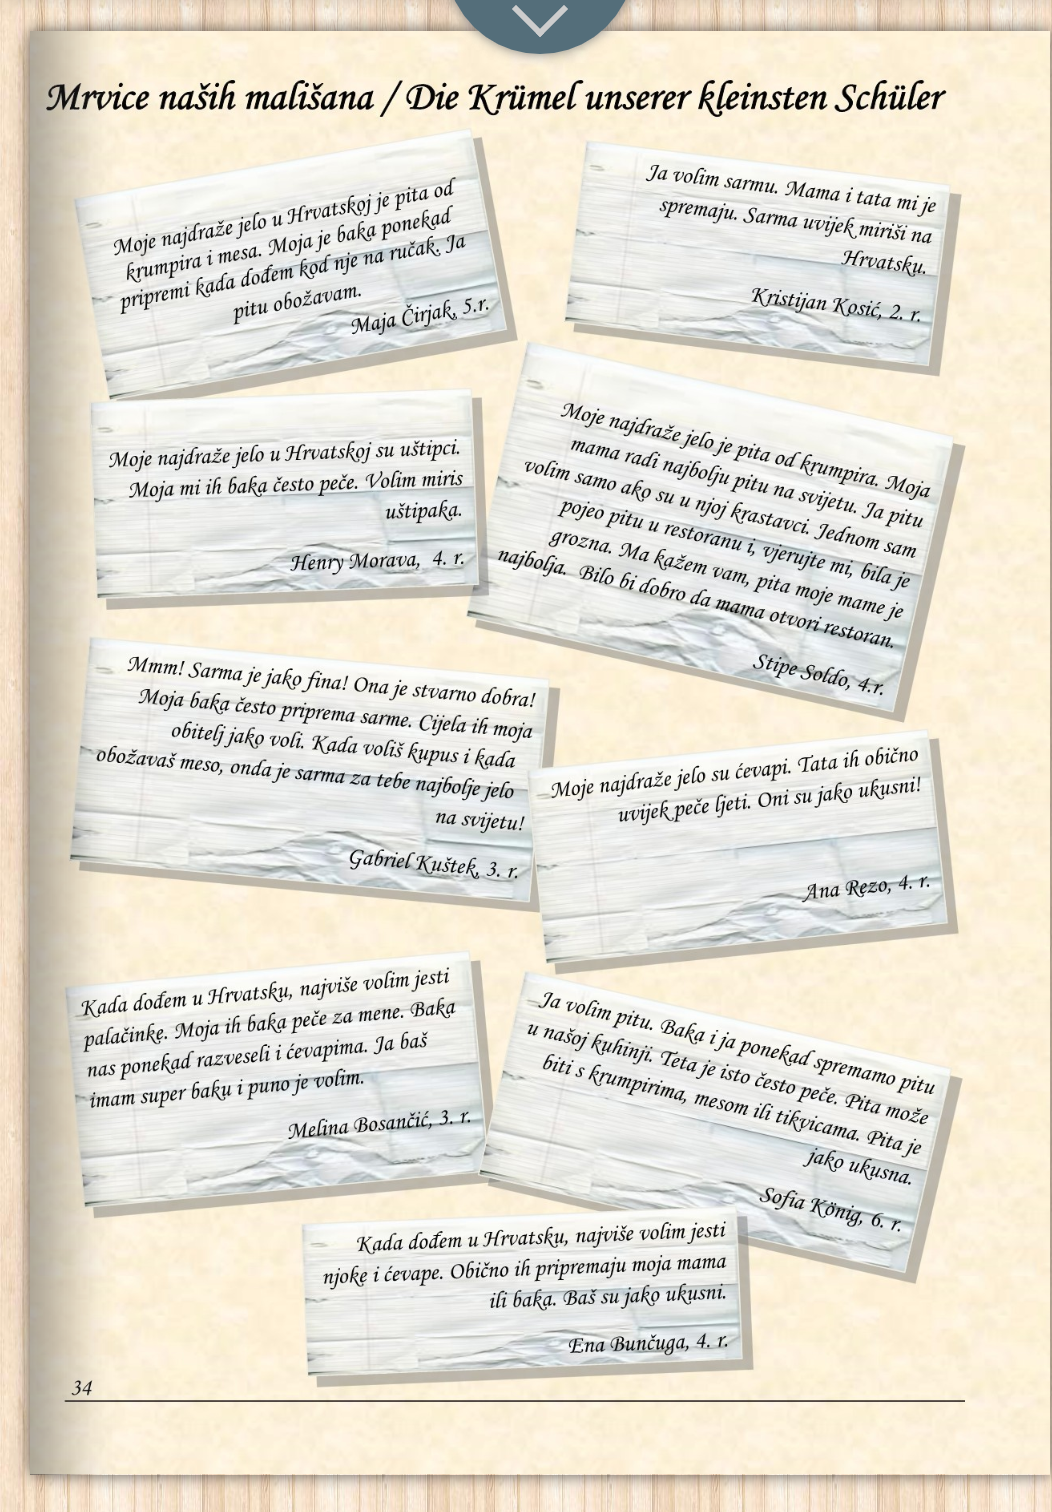 Mrvice naših mališana / Die Krümel unserer kleinsten Schüler
Moje najdraže jelo u Hrvatskoj je pita od
krumpira i mesa. Moja je baka ponekad
pripremi kada dođem kod nje na ručak. Ja
pitu obožavam.
Maja Čirjak, 5.r.
Ja volim sarmu. Mama i tata mi je
spremaju. Sarma uvijek miriši na
Hrvatsku.
Kristijan Kosić, 2. r.
Moje najdraže jelo u Hrvatskoj su uštipci.
Moja mi ih baka često peče. Volim miris
uštipaka.
Henry Morava, 4. r.
Moje najdraže jelo je pita od krumpira. Moja
mama radi najbolju pitu na svijetu. Ja pitu
volim samo ako su u njoj krastavci. Jednom sam
pojeo pitu u restoranu i, vjerujte mi, bila je
grozna. Ma kažem vam, pita moje mame je
najbolja. Bilo bi dobro da mama otvori restoran.
Stipe Soldo, 4.r.
Mmm! Sarma je jako fina! Ona je stvarno dobra!
Moja baka često priprema sarme. Cijela ih moja
obitelj jako voli. Kada voliš kupus i kada
obožavaš meso, onda je sarma za tebe najbolje jelo
na svijetu!
Gabriel Kuštek, 3. r.
Moje najdraže jelo su ćevapi. Tata ih obično
uvijek peče ljeti. Oni su jako ukusni!
Ana Rezo, 4. r.
Kada dođem u Hrvatsku, najviše volim jesti
palačinke. Moja ih baka peče za mene. Baka
nas ponekad razveseli i ćevapima. Ja baš
imam super baku i puno je volim.
Melina Bosančić, 3. r.
Ja volim pitu. Baka i ja ponekad spremamo pitu
u našoj kuhinji. Teta je isto često peče. Pita može
biti s krumpirima, mesom ili tikvicama. Pita je
jako ukusna.
Sofia König, 6. r.
Kada dođem u Hrvatsku, najviše volim jesti
njoke i ćevape. Obično ih pripremaju moja mama
ili baka. Baš su jako ukusni.
Ena Bunčuga, 4. r.
34